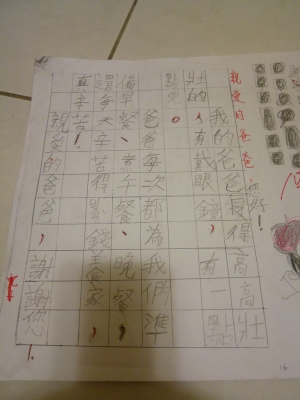 親愛的爸爸,你好!
我的爸爸長得高高壯
壯的,有戴眼鏡,有一點
點兇。
爸爸每次都為我們準
備早餐、煮午餐、晚餐,
每天辛苦得錢養家,
真辛苦!
親愛的爸爸,謝謝您!
16